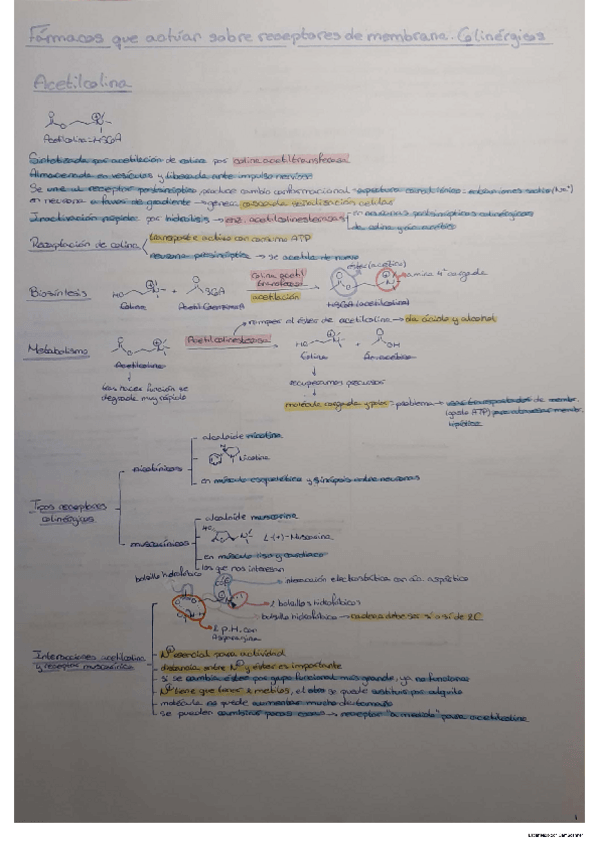 Fármacos que actúan sobre receptores de membrana: Colinérgicos
Acetilcolina
Acetilcolina
Sintetizada por acetilación de colina por colina acetiltransferasa
Almacenada en vesículas y liberada ante impulso nervioso
Se une al receptor postsináptico, produce cambio conformacional → apertura canal iónico: entran iones sodio (Na+)
en neurona a favor de gradiente → genera cascada señalización celular
Inactivación rápida: por hidrólisis → enz. acetilcolinesterasa
en neuronas postsinápticas colinérgicas
Recaptación de colina
transporte activo con consumo ATP
neurona presináptica → se acetila de nuevo
Biosíntesis
HO
Colina
+
SCoA
Colina acetil transferasa
acetilación
éster (acético)
amina 4ª cargada
romper el éster de acetilcolina → da ácido y alcohol
Metabolismo
Acetilcolina
Acetilcolinesterasa
HO
Colina
+
OH
tras hacer función se
degrada muy rápido
recuperamos precursor
molécula cargada y polar: problema →
(gasta ATP) para atravesar membr.
lipídica
Tipos receptores
colinérgicos
nicotínicos
alcaloide nicotina
Nicotina
en músculo esquelético y sinapsis entre neuronas
muscarínicos
alcaloide muscarina
L-(+)-Muscarina
en músculo liso y cardíaco
los que nos interesan
bolsillo hidrofóbico
interacción electrostática con ác. aspártico
2 bolsillos hidrofóbicos
bolsillo hidrofóbico → cadena debe ser sí o sí de 2C
P.H. con
Asparagina
Interacciones acetilcolina
y receptor muscarínico
N⊕ esencial para actividad
distancia entre N⊕ y éster es importante
si se cambia éster por grupo funcional más grande, ya no funciona
N⊕ tiene que tener 2 metilos, el otro se puede sustituir por alquilo
molécula no puede aumentar mucho de tamaño
se pueden cambiar pocas cosas → receptor "a medida" para acetilcolina
1